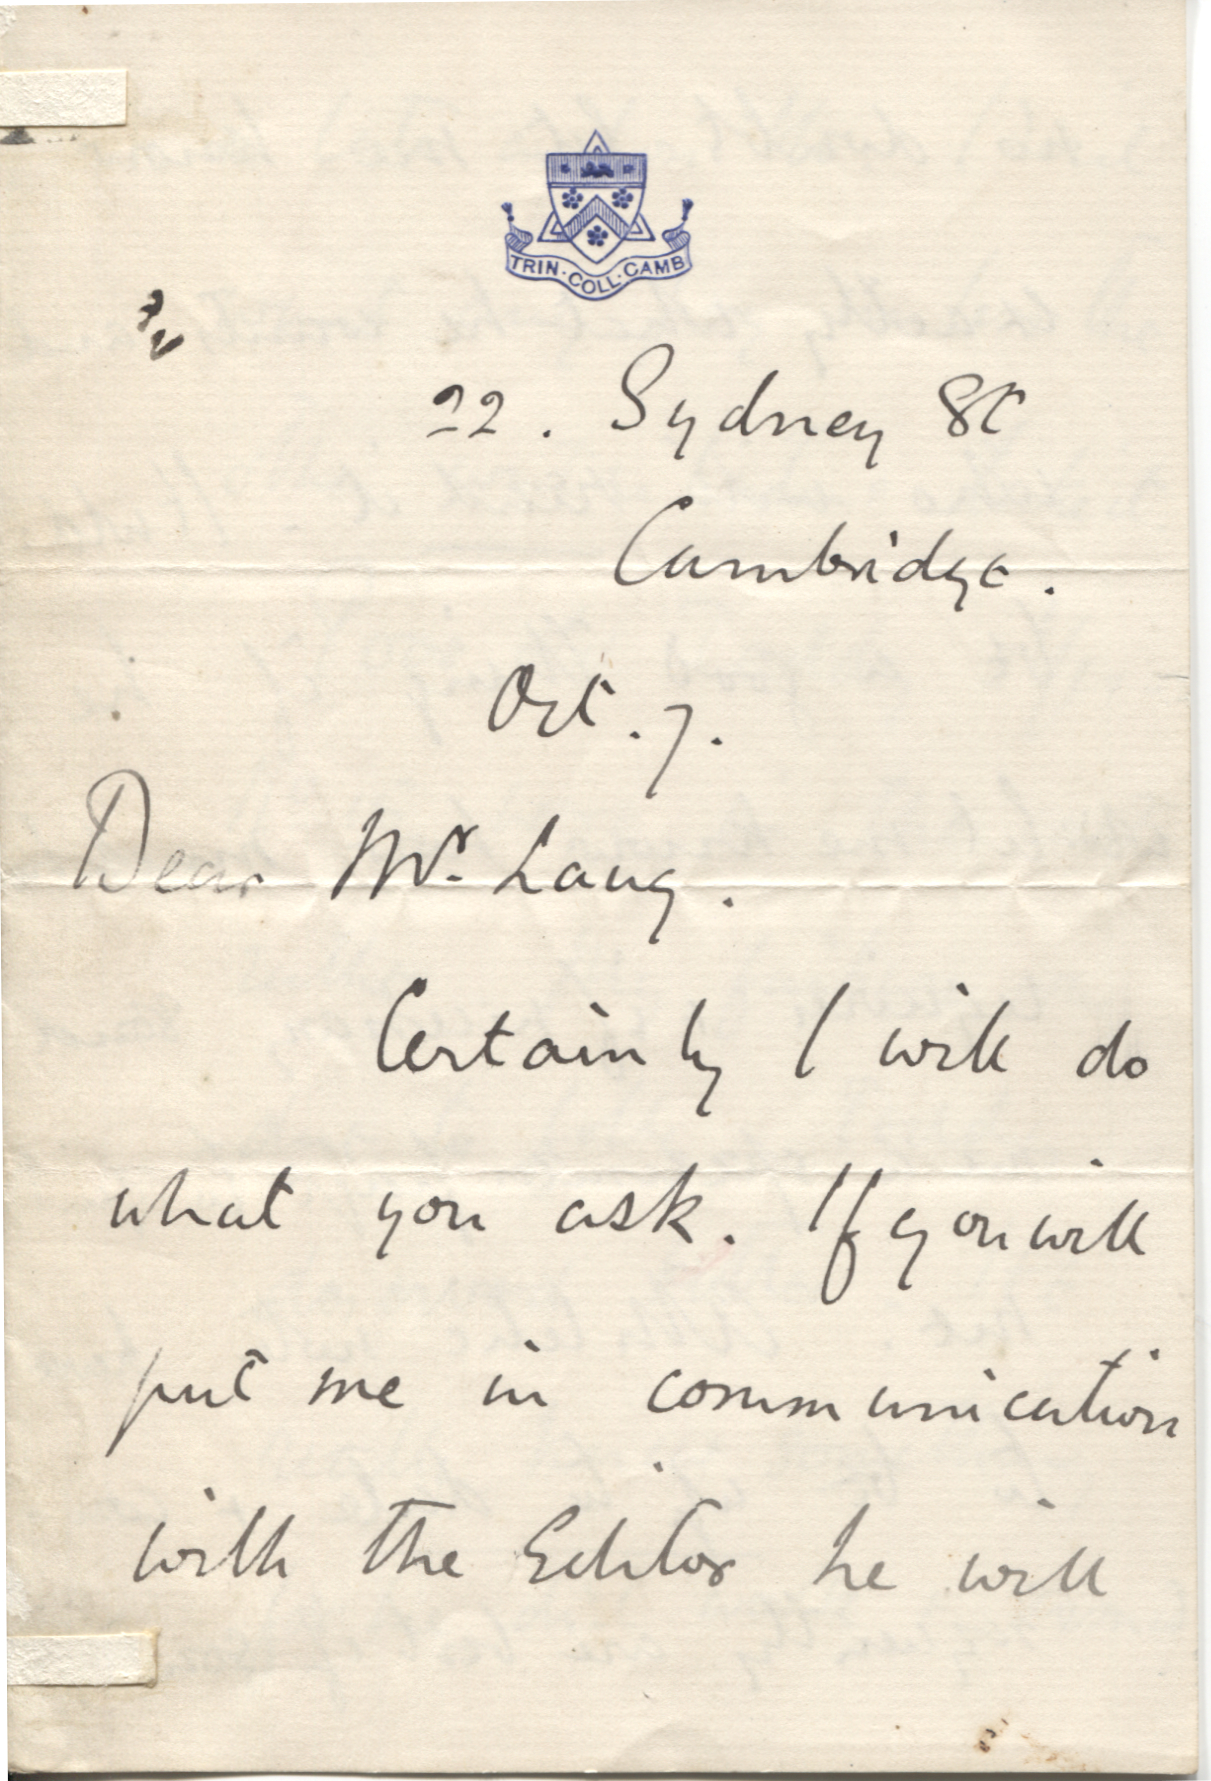 TRIN·COLL·CAMB
22. Sydney St
Cambridge.
Oct. 7.
Dear Mr. Lang.
Certainly I will do
what you ask. If you will
put me in communication
with the Editor he will